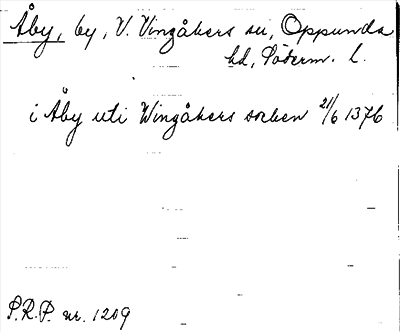 Åby, by, V. Vingåkers sn, Oppunda
hd, Söderm. l.
i Åby uti Wingåkers socken 21/6 1376
P.R.P. nr. 1209